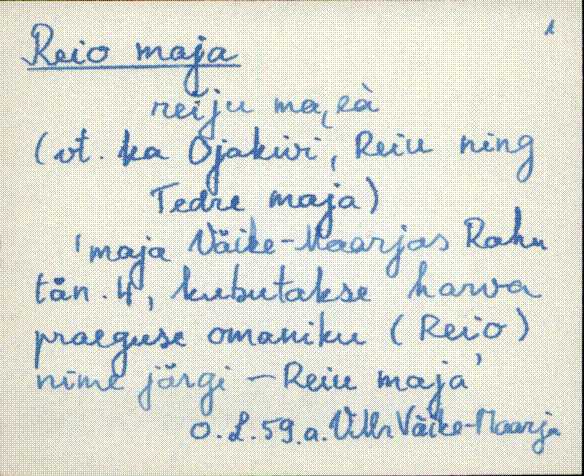 Reio maja
reiju ma,eà
(vt. ka Ojakivi, Reiu ning
Tedre maja)
'maja Väike-Maarjas Rahu
tän. 4, kutsutakse harva
praeguse omaniku (Reio)
nime järgi – Reiu maja'
O.L. 59.a. VMr Väike-Maarja